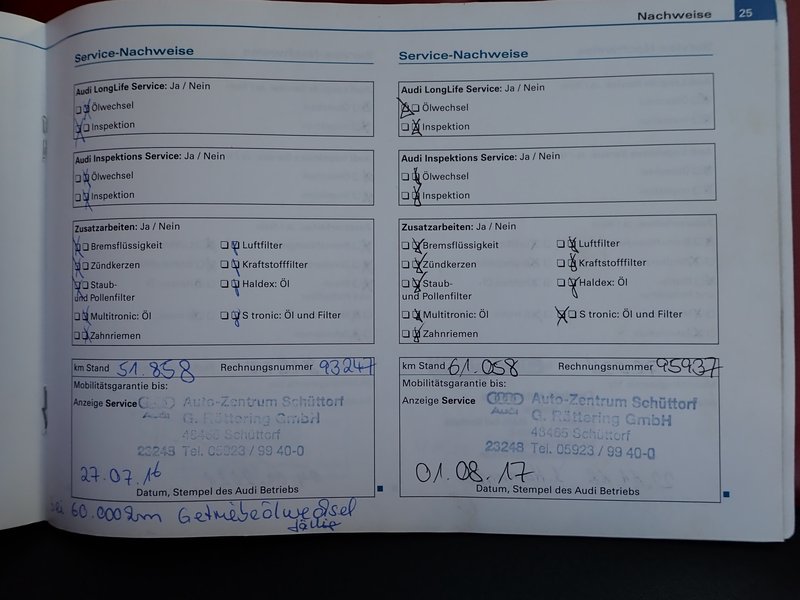 Nachweise 25
Service-Nachweise
Audi LongLife Service: Ja / Nein
Ölwechsel
Inspektion
Audi Inspektions Service: Ja / Nein
Ölwechsel
Inspektion
Zusatzarbeiten: Ja / Nein
Bremsflüssigkeit Luftfilter
Zündkerzen Kraftstofffilter
Staub- Haldex: Öl
und Pollenfilter
Multitronic: Öl S tronic: Öl und Filter
Zahnriemen
km Stand 51.858 Rechnungsnummer 93247
Mobilitätsgarantie bis:
Anzeige Service Auto-Zentrum Schüttorf
Audi G. Röttering GmbH
48465 Schüttorf
23248 Tel. 05923 / 99 40-0
27.07.16
Datum, Stempel des Audi Betriebs
bei 60.000km Getriebeölwechsel
fällig
Service-Nachweise
Audi LongLife Service: Ja / Nein
Ölwechsel
Inspektion
Audi Inspektions Service: Ja / Nein
Ölwechsel
Inspektion
Zusatzarbeiten: Ja / Nein
Bremsflüssigkeit Luftfilter
Zündkerzen Kraftstofffilter
Staub- Haldex: Öl
und Pollenfilter
Multitronic: Öl S tronic: Öl und Filter
Zahnriemen
km Stand 61.058 Rechnungsnummer 95937
Mobilitätsgarantie bis:
Anzeige Service Auto-Zentrum Schüttorf
Audi G. Röttering GmbH
48465 Schüttorf
23248 Tel. 05923 / 99 40-0
01.08.17
Datum, Stempel des Audi Betriebs